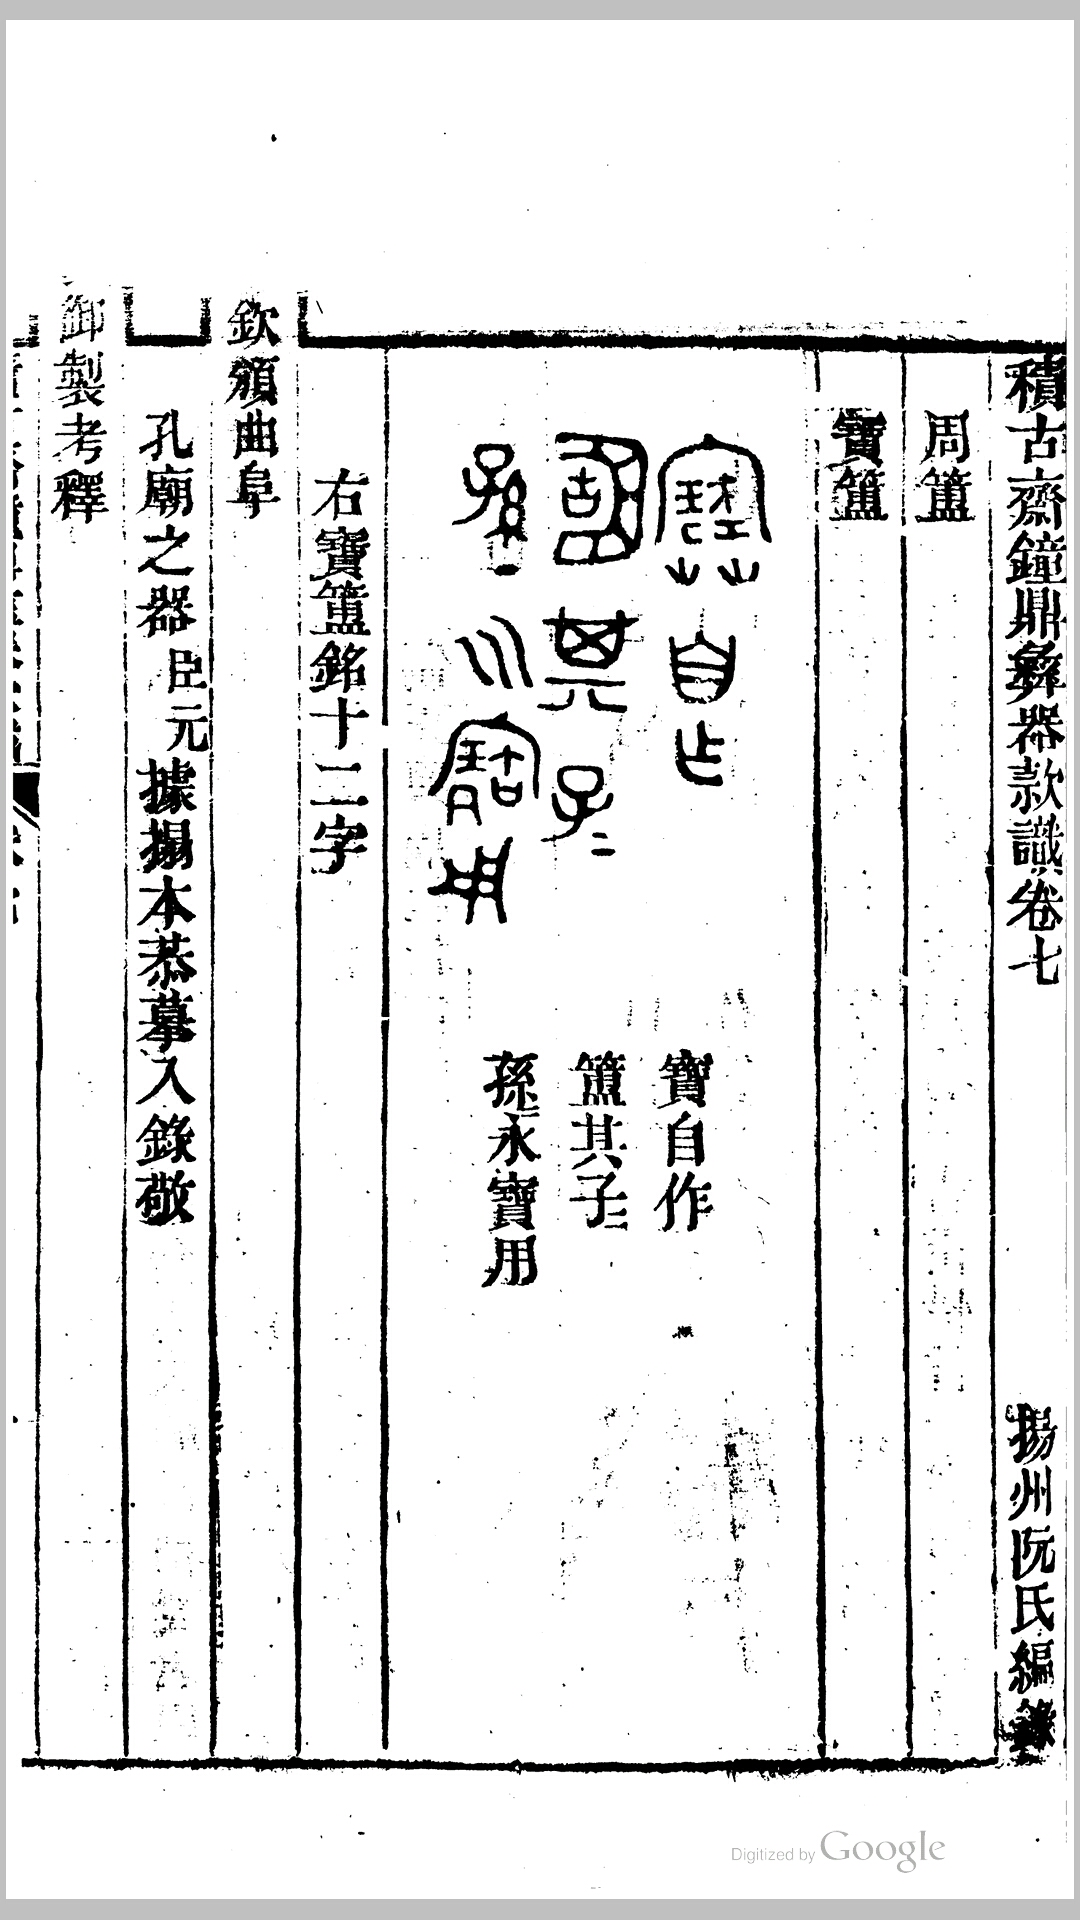 積古齋鐘鼎彝器款識卷七
揚州阮氏編錄
周簠
寶簠
寶自作
簠其子二
孫二永寶用
右寶簠銘十二字
欽頒曲阜
孔廟之器臣元據搨本恭摹入錄敬
御製考釋
Digitized by Google